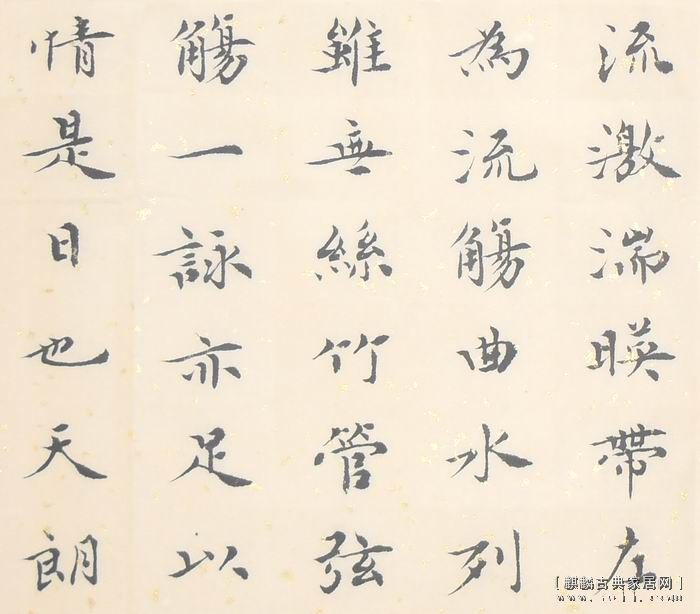 流激湍暎帶左
為流觴曲水列
雖無絲竹管弦
觴一詠亦足以
情是日也天朗
[麒麟古典家居网]